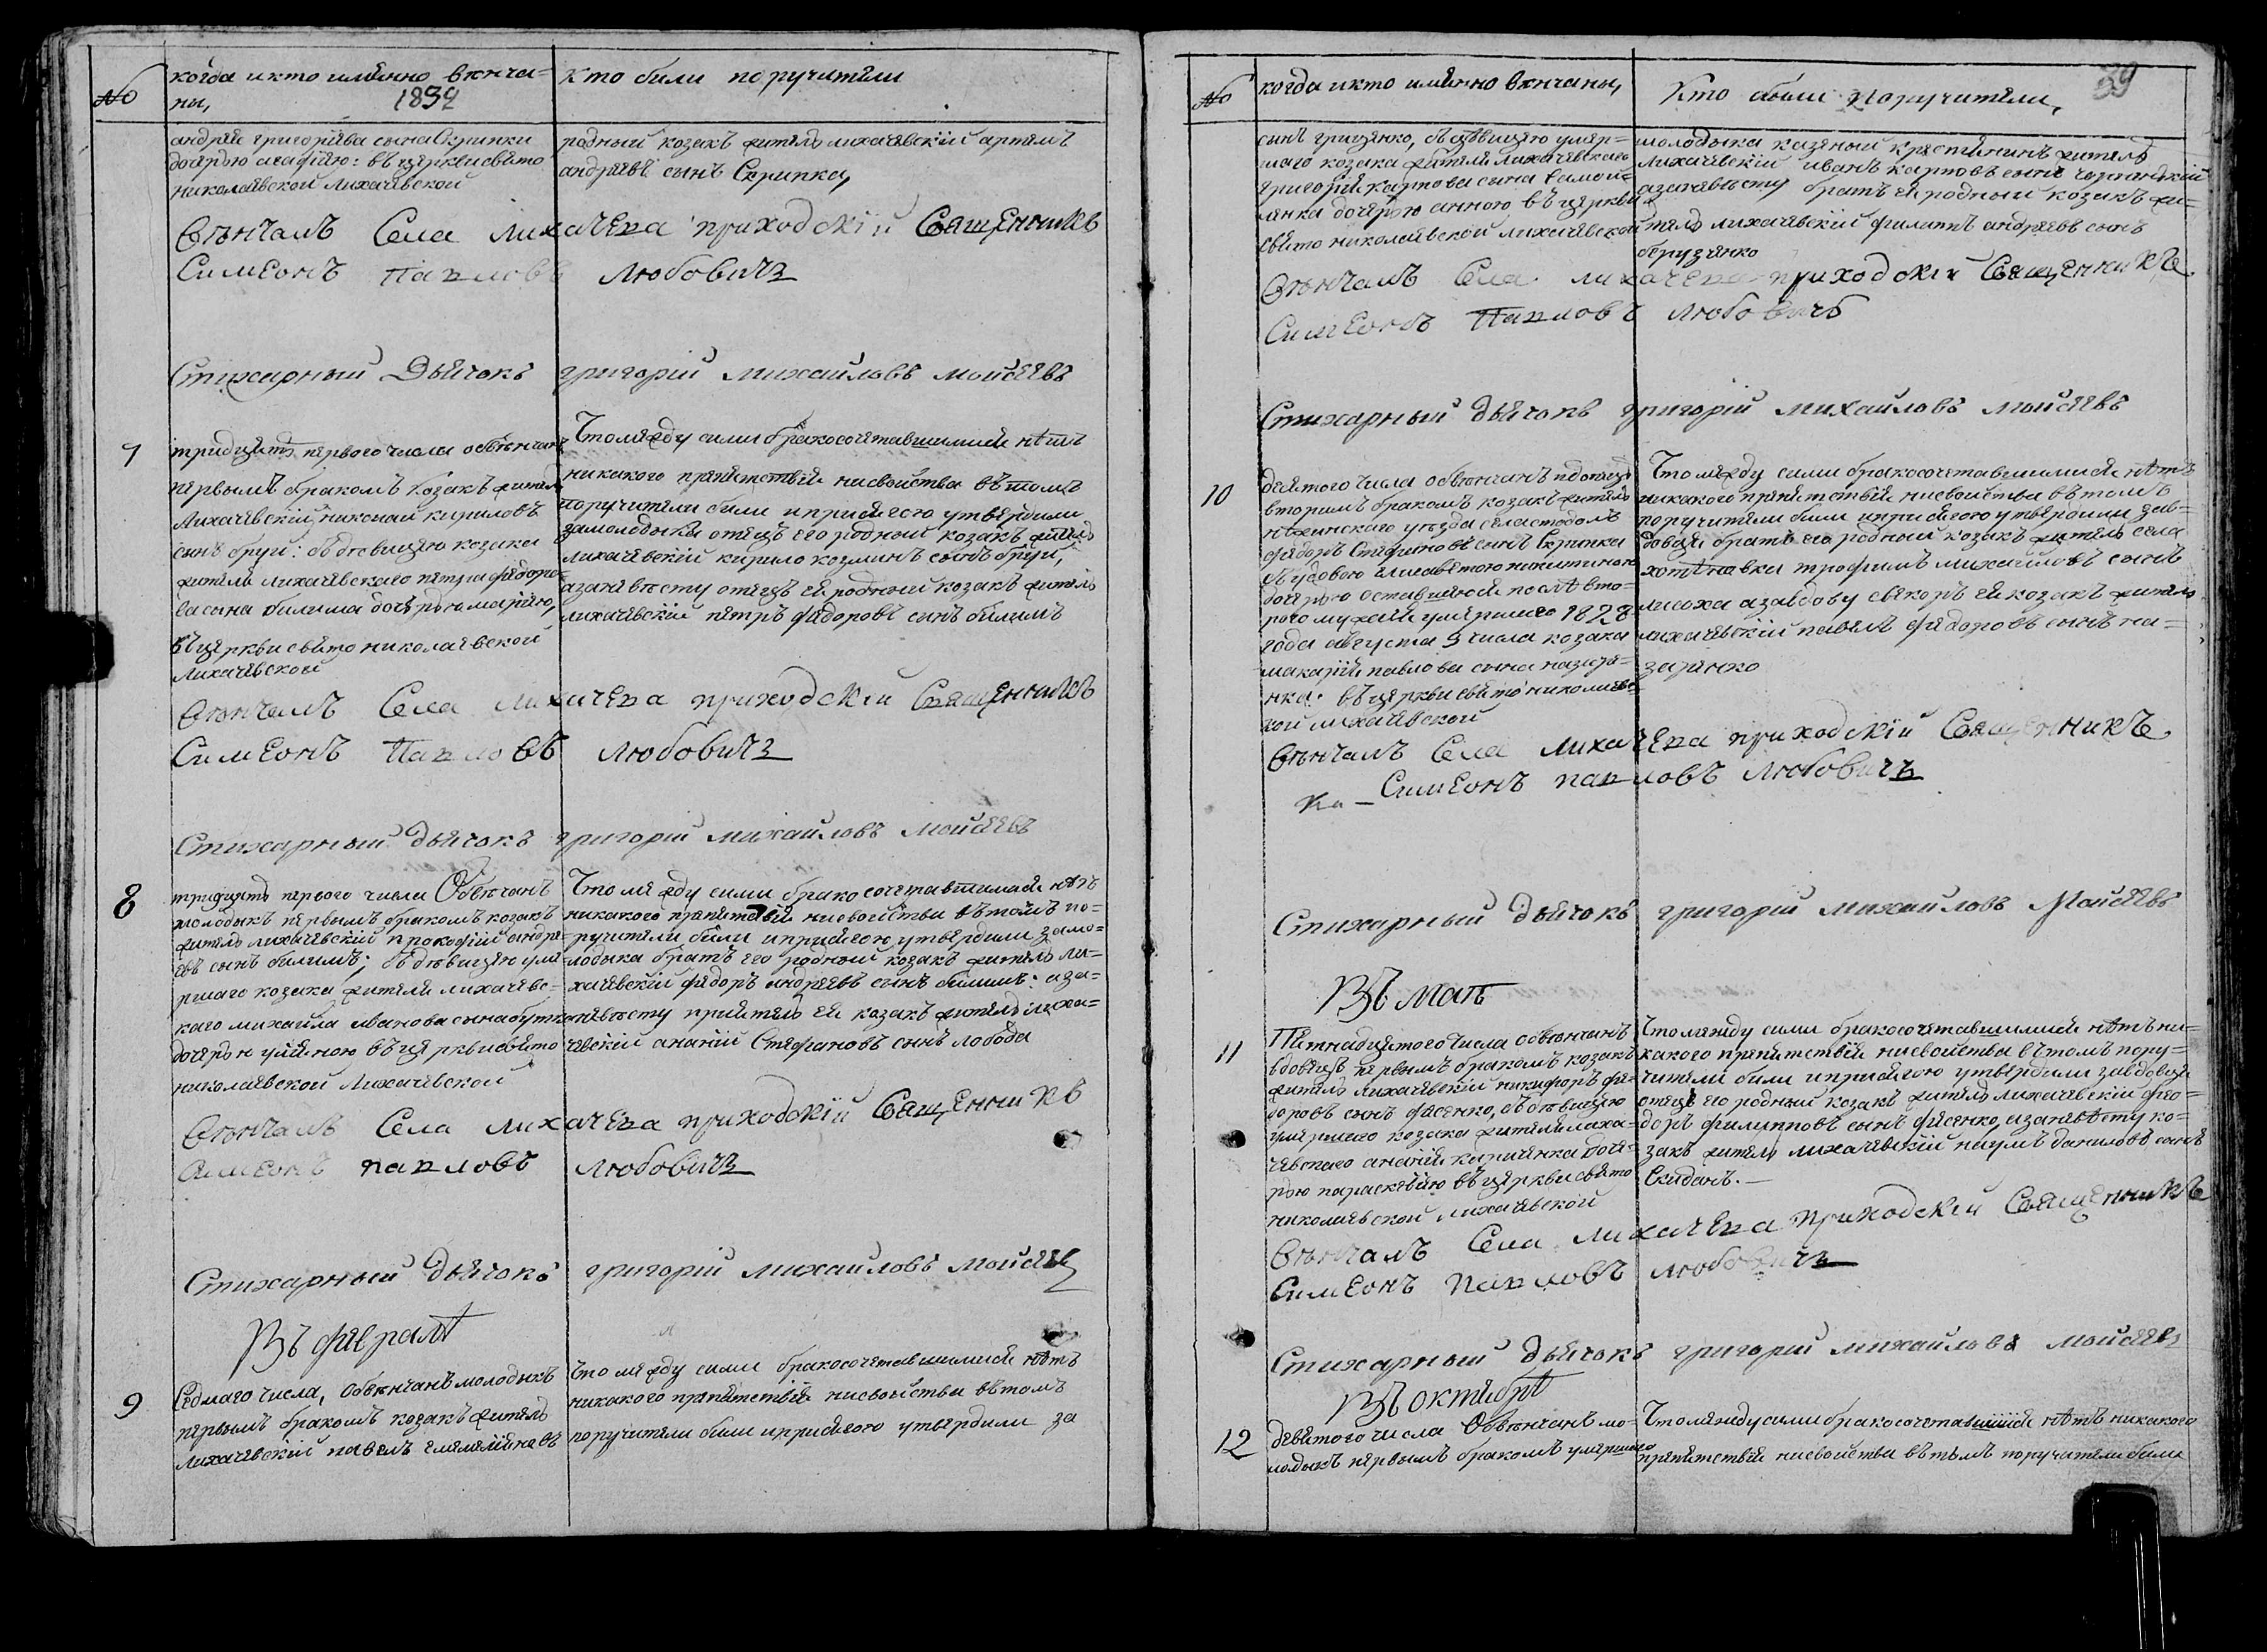 №
когда и кто имянно венча=
ны,
1832
кто били поручители
андрея григорїева сына Скрипки
дочерью агафїею: въ церкви свято
николаевской Лихачевской
родный козакъ житель лихачевскїй артемъ
андреевъ сынъ Скрипка,
Венчалъ Села Лихачева приходскїй Священникъ
Симеонъ Павловъ Любовичъ
Стихарный Дьячокъ григорїй михайловъ моисеевъ
7
тридцять первого числа обвенчанъ
первымъ бракомъ козакъ житель
Лихачевскїй николай кириловъ
сынъ бруй: съ девицею козака
житель лихачевского петра федоро=
ва сына билима дочерью марїею,
въ церкви свято николаевской
Лихачевской
Что между сими бракосочетавшимися нетъ
никакого препятствїя ни свойства въ томъ
поручители били и присягою утвердили
за молодыка отецъ его родный козакъ житель
лихачевскїй кирило козминъ сынъ бруй,
а за невесту отецъ ея родный козакъ житель
лихачевскїй петръ федоровъ сынъ билимъ
Венчалъ Села Лихачева приходскїй Священникъ
Симеонъ Павловъ Любовичъ
Стихарный дьячокъ григорїй михайловъ Моисеевъ
8
тридцять первого числа Обвенчанъ
молодыкъ первымъ бракомъ козакъ
житель лихачевскїй прокофїй андре=
евъ сынъ билимъ; съ девицею уме=
ршаго козака жителя лихачевс=
каго михайла иванова сына бутка
дочерью улїяною въ церкви свято
николаевской Лихачевской
Что между сими бракосочетавшимися нетъ
никакого препятствїя ни свойства въ томъ по=
ручители били и присягою утвердили за мо=
лодыка братъ его родный козакъ житель ли=
хачевскїй федоръ андреевъ сынъ билимъ: а за=
невесту прїятель ея козакъ житель лиха=
чевскїй ананїй Стефановъ сынъ лобода
Венчалъ Села Лихачева приходскїй Священникъ
Симеонъ Павловъ Любовичъ
Стихарный дьячокъ григорїй михайловъ Моисеевъ
Въ феврале
9
Седмаго числа, Обвенчанъ молодыкъ
первымъ бракомъ козакъ житель
Лихачевскїй павелъ емелїяновъ
Что между сими бракосочетавшимися нетъ
никакого препятствїя ни свойства въ томъ
поручители били и присягою утвердили за
39
№
когда и кто имянно венчаны,
Кто были поручители,
сынъ гриценко, съ девицею умер=
шаго козака жителя Лихачевского
григорїя карпова сына Самой=
ленка дочерью анною въ церкви
свято николаевской лихачевской
молодыка казеный крестянинъ житель
лихачевскїй иванъ карповъ сынъ
а за невесту братъ ея родный козакъ жи=
тель лихачевскїй филипъ андреевъ сынъ
берузенко
Венчалъ Села Лихачева приходскїй Священникъ
Симеонъ Павловъ Любовичъ
Стихарный дьячокъ григорїй михайловъ моисеевъ
10
десятого числа обвенчанъ вдовецъ
вторымъ бракомъ козакъ житель
неженского уезда села стодолъ
федоръ Стефановъ сынъ Скрипка
съ удовою Елисаветою никитиною
дочерью оставшеюся после вто=
рого мужа умершего 1828
года августа 9 числа козака
макарїя павлова сына назаре=
нка: въ церкви свято николаевс=
кой лихачевской
Что между сими бракосочетавшимися нетъ
никакого препятствїя ни свойства въ томъ
поручители били и присягою утвердили за в=
довця братъ его родный козакъ житель села
хотеновки трофимъ михайловъ сынъ
лисоха а за вдову свекоръ ея козакъ житель
лихачевскїй павелъ федоровъ сынъ на=
заренко
Венчалъ Села Лихачева приходскїй Священникъ
Симеонъ павловъ Любовичъ
Стихарный дьячокъ григорїй михайловъ Моисеевъ
Въ маѣ
11
Пятнадцятого числа обвенчанъ
вдовецъ первымъ бракомъ козакъ
житель лихачевскїй никифоръ фе=
доровъ сынъ фесенко, съ девицею
умершего козака жителя лиха=
чевского ананїя кириченка доче=
рью параскевїею въ церкви свято
николаевской лихачевской
Что между сими бракосочетавшимися нетъ ни=
какого препятствїя ни свойства въ томъ пору=
чители били и присягою утвердили за вдовця
отецъ его родный козакъ житель лихачевскїй фео=
доръ филипповъ сынъ фесенко, а за невесту ко=
закъ житель лихачевскїй наумъ даниловъ сынъ
Скиданъ.—
Венчалъ Села Лихачева приходскїй Священникъ
Симеонъ Павловъ Любовичъ
Стихарный дьячокъ григорїй михайловъ моисеевъ
Въ октябрѣ
12
девятого числа Обвенчанъ мо=
лодыкъ первымъ бракомъ умершого
Что между сими бракосочетавшимися нетъ никакого
препятствїя ни свойства въ томъ поручители били